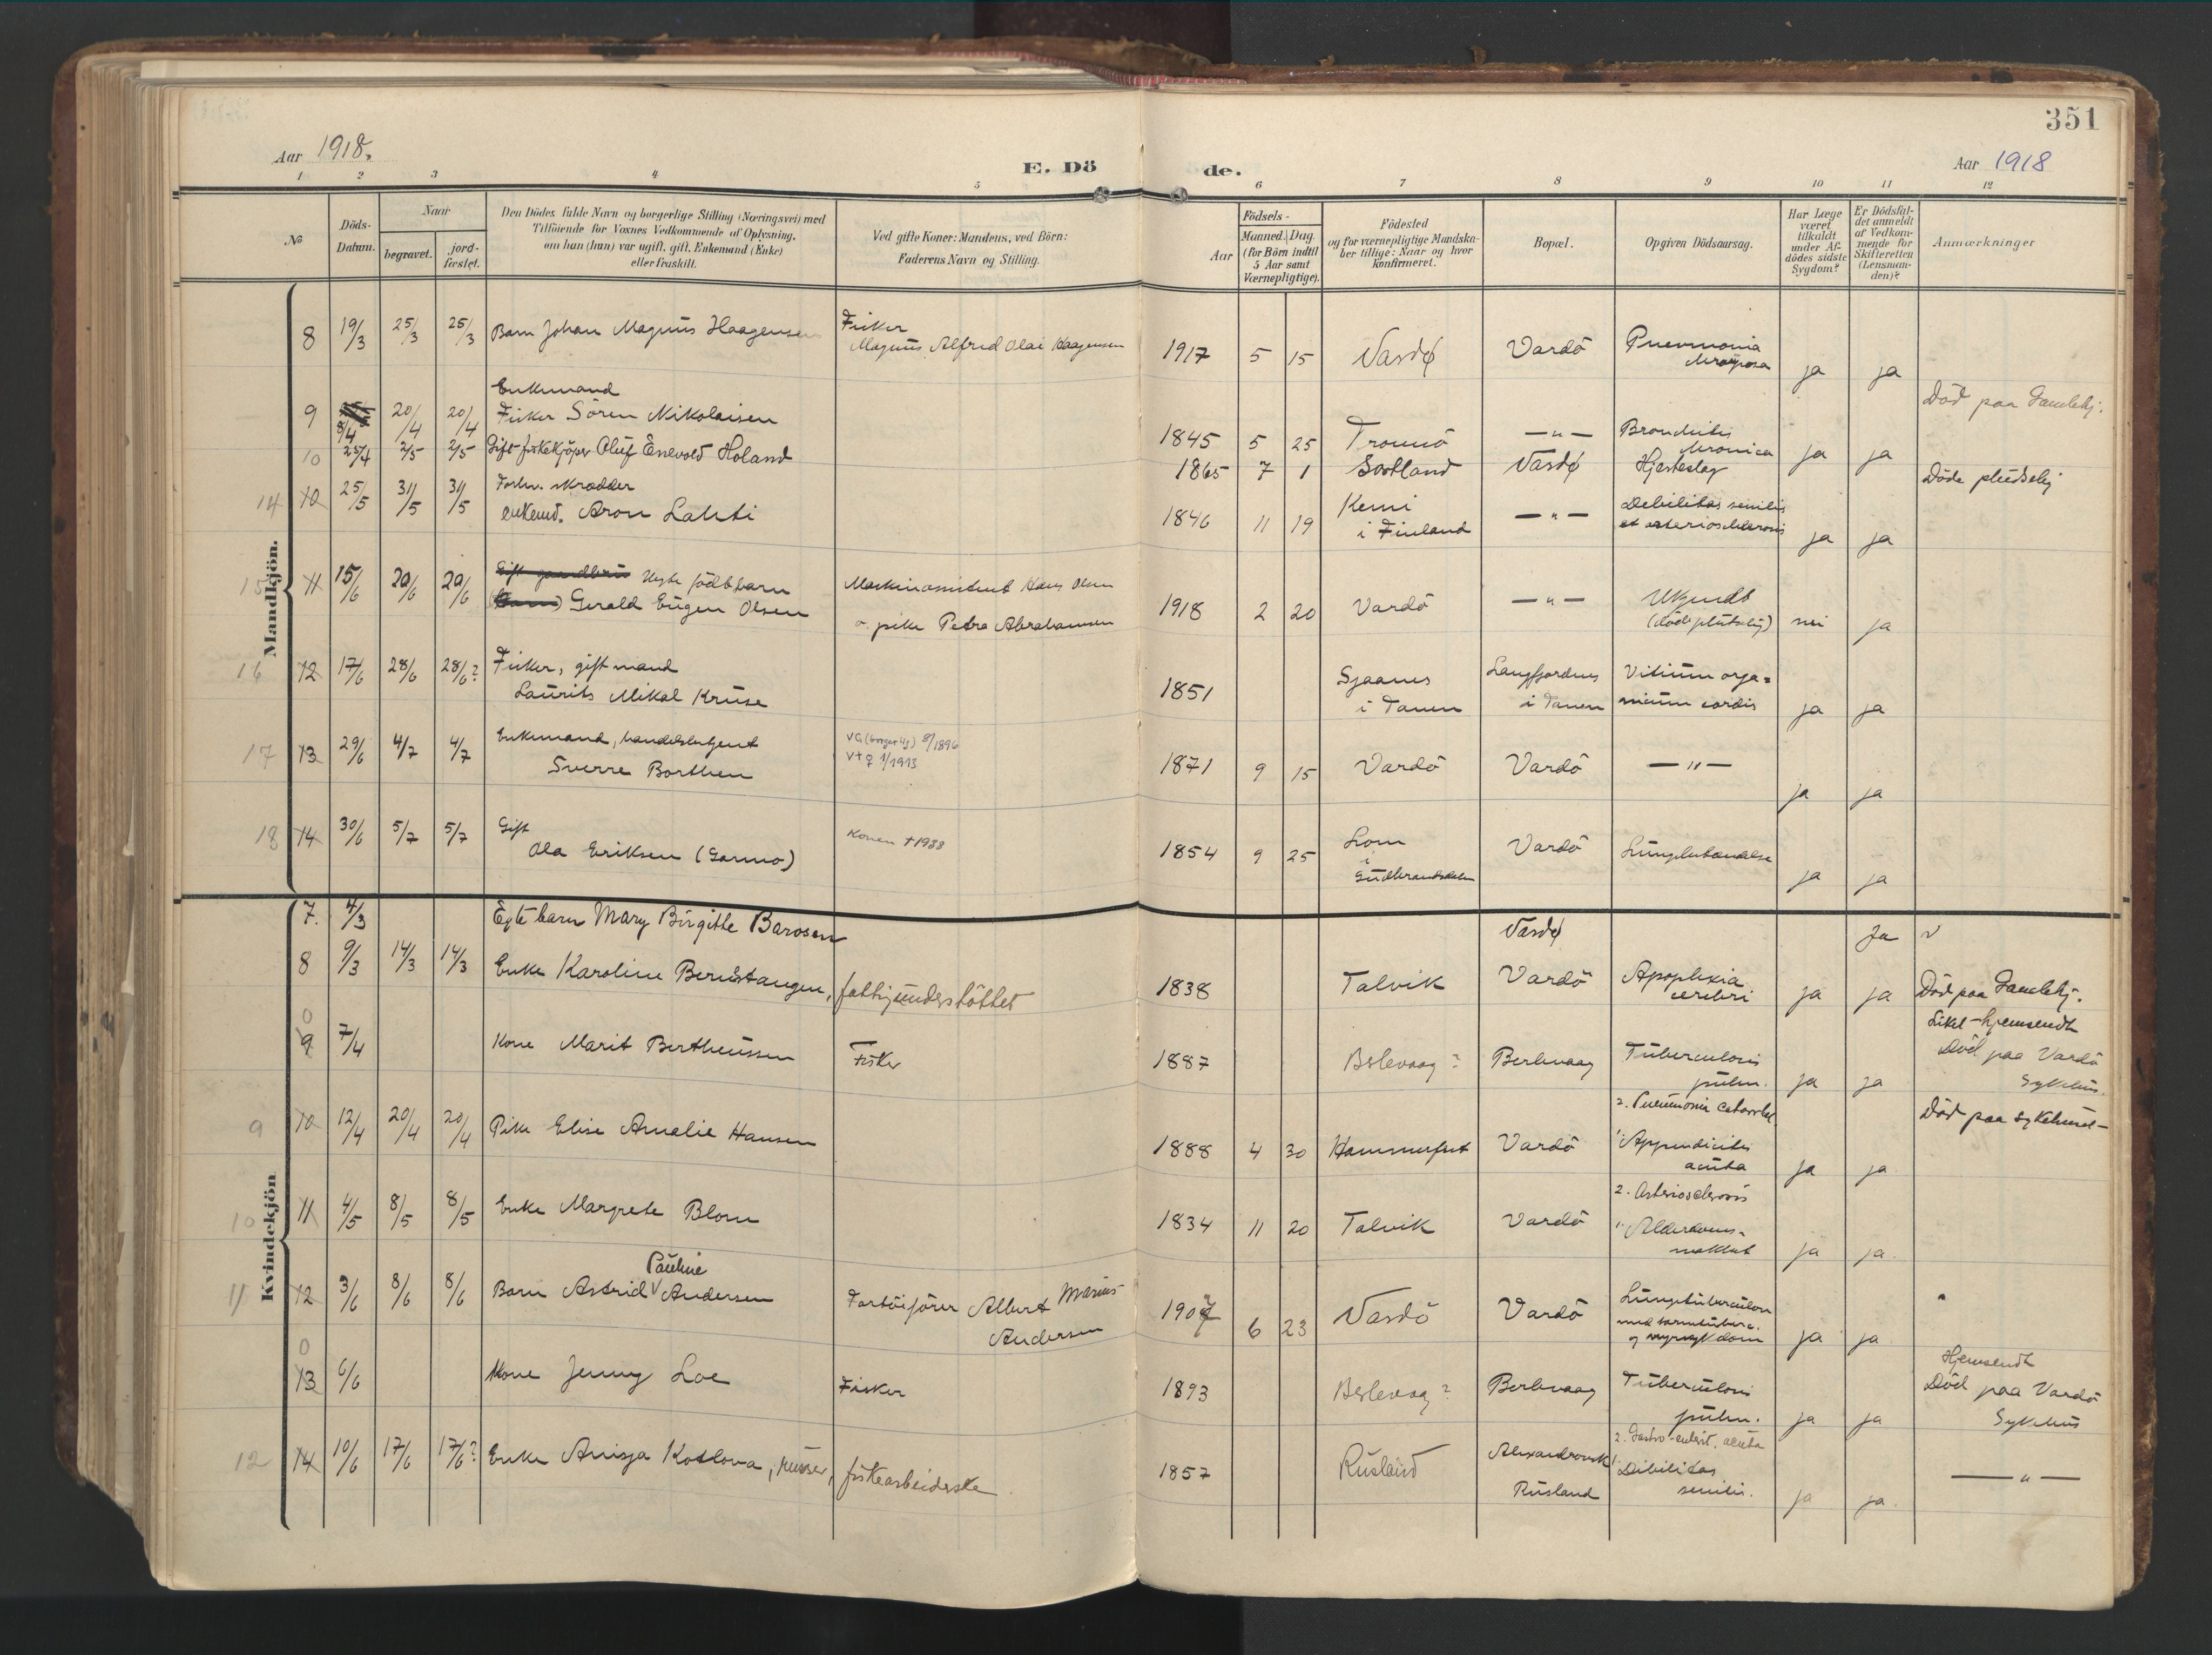 351
Aar 1918.
E. Dö
de.
Aar 1918
1 2 3 4 5 6 7 8 9 10 11 12
No
Döds-
Datum.
Naar
begravet.
jord-
fæstet.
Den Dödes fulde Navn og borgerlige Stilling (Næringsvei) med
Tilföiende for Voxnes Vedkommende af Oplysning,
om han (hun) var ugift, gift, Enkemand (Enke)
eller fraskilt.
Ved gifte Koner: Mandens, ved Börn:
Faderens Navn og Stilling.
Födsels-
Aar
Maaned. Dag.
(for Börn indtil
5 Aar samt
Værnepligtige).
Födested
og for værnepligtige Mandska-
ber tillige: Naar og hvor
konfirmeret.
Bopæl.
Opgiven Dödsaarsag.
Har Læge
været
tilkaldt
under Af-
dödes sidste
Sygdom?
Er Dödsfal-
det anmeldt
af Vedkom-
mende for
Skifteretten
(Lensman-
den)?
Anmærkninger
Mandkjön.
8 19/3 25/3 25/3 Barn Johan Magnus Haagensen Fisker
Magnus Alfred Olai Haagensen 1917 5 15 Vardø Vardö Pneumonia
ja ja
Enkemand
9 8/4 20/4 20/4 Fisker Sören Nikolaisen 1845 5 25 Tromsö —"— Bronchitis
chronica ja ja Död paa Gamlehj.
10 25/4 2/5 2/5 Gift fiskekjöper Oluf Enevold Holand 1865 7 1 Vardø Hjerteslag Döde pludselig
14 10 25/5 31/5 31/5 Forhv. skrædder
enkemd. Aron Lahti 1846 11 19 Kemi
i Finland —"— Debilitas senilis
et arteriosclerosis ja ja
15 11 15/6 20/6 20/6 Uegte födt barn
Gerald Eugen Olsen Maskinassistent Hans Olsen
o. pike Petra Abrahamsen 1918 2 20 Vardö —"— Ukjendt
(döde plutselig) nei ja
16 12 17/6 28/6 28/6? Fisker, gift mand
Laurits Mikal Kruse 1851
i Tanen Langfjordnes
i Tanen Vitium orga=
nicum cordis ja ja
17 13 29/6 4/7 4/7 Enkemand, handelsbetjent
Sverre Borthen VG (borgerlig) 8/1896
V+♀ 1/1913 1871 9 15 Vardö Vardö —"— ja ja
18 14 30/6 5/7 5/7 Gift
Ola Eriksen (Garmo) Konen +1933 1854 9 25 Lom
i
Gudbrandsdalen Vardö Lungebetændelse ja ja
Kvindekjön
7. 4/3 Egte barn Mary Birgitte Barosen Vardø Ja v
8 9/3 14/3 14/3 Enke Karoline Berustangen, fattigunderstöttet 1838 Talvik Vardö Apoplexia
cerebri ja ja Död paa Gamlehj.
0
9 7/4 Kone Marit Bertheussen Fisker 1887 Berlevaag? Berlevaag Tuberculosis
pulm. ja ja Liket hjemsendt
Död paa Vardö
Sykehus.
9 10 12/4 20/4 20/4 Pike Elise Amalie Hansen 1888 4 30 Hammerfest Vardö 2. Pneumonia catarrhal
1. Appendicitis
acuta ja ja Död paa sykehuset—
10 11 4/5 8/5 8/5 Enke Margrete Blom 1834 11 20 Talvik Vardö 2. Arteriosclerosis
1. Alderdoms-
svakhet ja ja.
11 12 3/6 8/6 8/6 Barn Astrid Pauline Andersen Fartöiförer Albert Marius
Andersen 1907 6 23 Vardö Vardö Lungetuberculose
med tarmtuberc.
og nyresykdom ja ja
0
13 6/6 Kone Jenny Loe Fisker 1893 Berlevaag? Berlevaag Tuberculosis
pulm. ja ja Hjemsendt
Död paa Vardö
Sykehus
12 14 10/6 17/6 17/6? Enke Anisja Koslova, russer, fiskearbeiderske. 1857 Rusland Alexandrovsk
Rusland 2. Gastro-enterit. acuta
1. Debilitas
senilis. ja ja. —"—